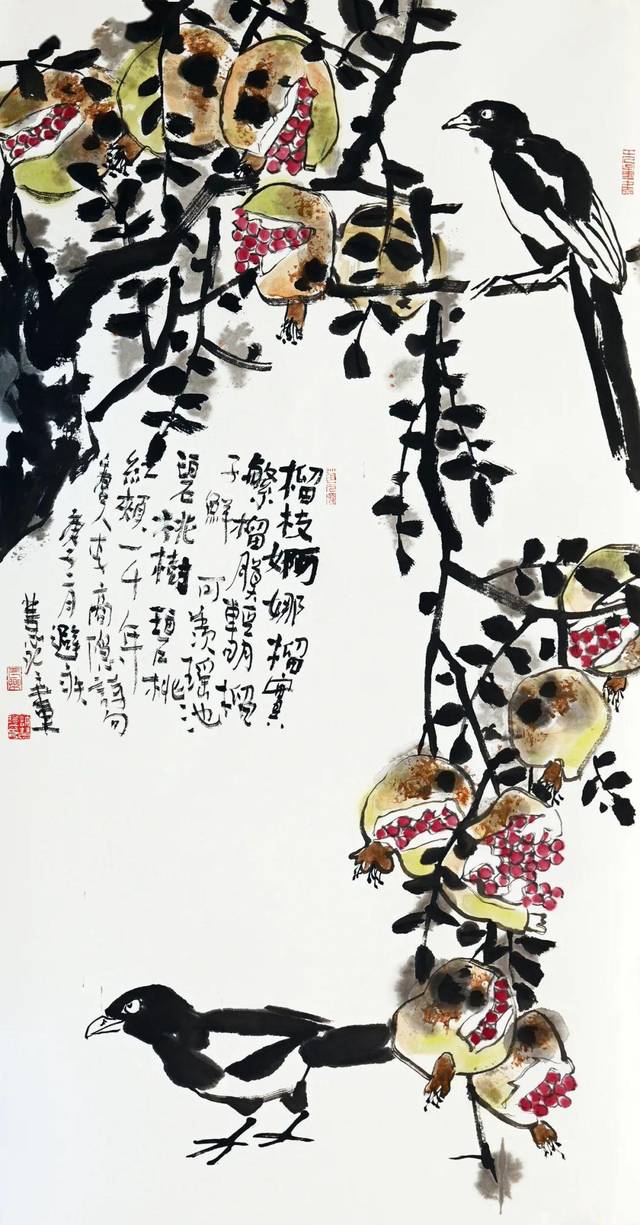 榴枝婀娜榴實
繁榴膜輕明榴
子鮮 可羨瑤池
碧桃樹碧桃
紅頰一千年
唐人李商隱詩句
庚子二月避疫
畫